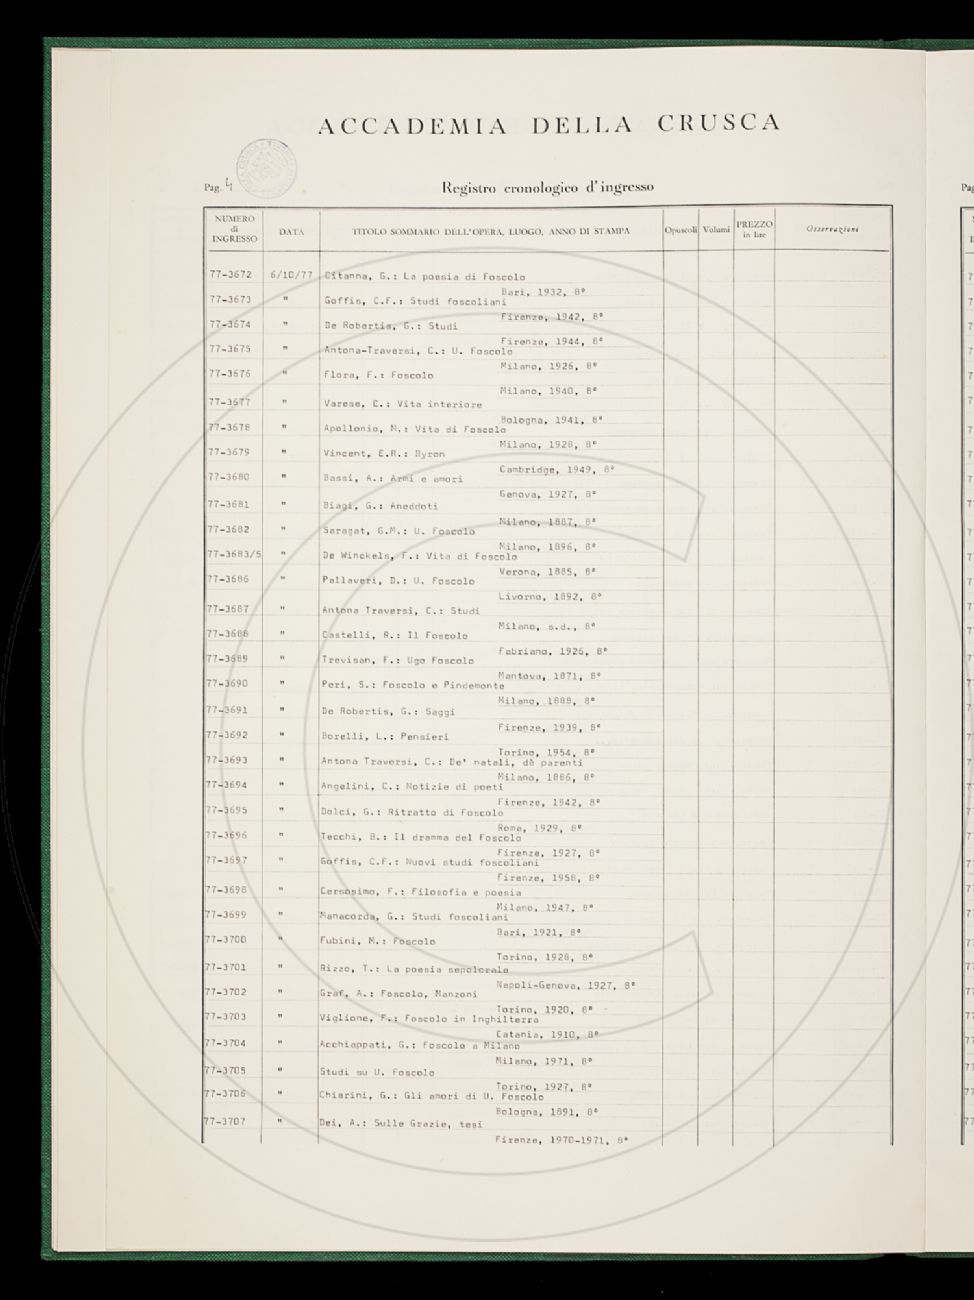 ACCADEMIA DELLA CRUSCA
Pag. 4
Registro cronologico d'ingresso
NUMERO di INGRESSO DATA TITOLO SOMMARIO DELL'OPERA, LUOGO, ANNO DI STAMPA Opuscoli Volumi PREZZO in lire Osservazioni
77-3672 6/10/77 Citanna, G.: La poesia di Foscolo
Bari, 1932, 8°
77-3673 " Goffis, C.F.: Studi foscoliani
Firenze, 1942, 8°
77-3674 " De Robertis, G.: Studi
Firenze, 1944, 8°
77-3675 " Antona-Traversi, C.: U. Foscolo
Milano, 1926, 8°
77-3676 " Flora, F.: Foscolo
Milano, 1940, 8°
77-3677 " Varese, C.: Vita interiore
Bologna, 1941, 8°
77-3678 " Apollonio, M.: Vita di Foscolo
Milano, 1928, 8°
77-3679 " Vincent, E.R.: Byron
Cambridge, 1949, 8°
77-3680 " Bassi, A.: Armi e amori
Genova, 1927, 8°
77-3681 " Biagi, G.: Aneddoti
Milano, 1887, 8°
77-3682 " Saragat, G.M.: U. Foscolo
Milano, 1896, 8°
77-3683/5 " De Winckels, F.: Vita di Foscolo
Verona, 1885, 8°
77-3686 " Pallaveri, D.: U. Foscolo
Livorno, 1892, 8°
77-3687 " Antona Traversi, C.: Studi
Milano, s.d., 8°
77-3688 " Castelli, R.: Il Foscolo
Fabriano, 1926, 8°
77-3689 " Trevisan, F.: Ugo Foscolo
Mantova, 1871, 8°
77-3690 " Peri, S.: Foscolo e Pindemonte
Milano, 1888, 8°
77-3691 " De Robertis, G.: Saggi
Firenze, 1939, 8°
77-3692 " Borelli, L.: Pensieri
Torino, 1954, 8°
77-3693 " Antona Traversi, C.: De' natali, dè parenti
Milano, 1886, 8°
77-3694 " Angelini, C.: Notizie di poeti
Firenze, 1942, 8°
77-3695 " Dolci, G.: Ritratto di Foscolo
Roma, 1929, 8°
77-3696 " Tecchi, B.: Il dramma del Foscolo
Firenze, 1927, 8°
77-3697 " Goffis, C.F.: Nuovi studi foscoliani
Firenze, 1958, 8°
77-3698 " Cersosimo, F.: Filosofia e poesia
Milano, 1947, 8°
77-3699 " Manacorda, G.: Studi foscoliani
Bari, 1921, 8°
77-3700 " Fubini, M.: Foscolo
Torino, 1928, 8°
77-3701 " Rizzo, T.: La poesia sepolcrale
Napoli-Genova, 1927, 8°
77-3702 " Graf, A.: Foscolo, Manzoni
Torino, 1920, 8°
77-3703 " Viglione, F.: Foscolo in Inghilterra
Catania, 1910, 8°
77-3704 " Acchiappati, G.: Foscolo a Milano
Milano, 1971, 8°
77-3705 " Studi su U. Foscolo
Torino, 1927, 8°
77-3706 " Chiarini, G.: Gli amori di U. Foscolo
Bologna, 1891, 8°
77-3707 " Dei, A.: Sulle Grazie, tesi
Firenze, 1970-1971, 8°